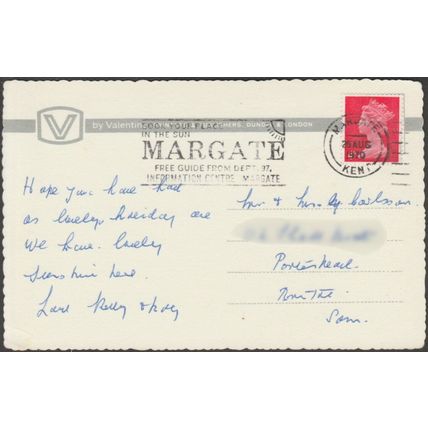 by Valentine
PUBLISHERS, DUNDEE & LONDON
BOOK YOUR PLACE
IN THE SUN
MARGATE
FREE GUIDE FROM DEPT. 97,
INFORMATION CENTRE MARGATE
MARGATE
AUG
1970
KENT
Hope you have had
as lovely holiday are
we have. lovely
Sunshine here.
Love
Mr & Mrs
Portishead.
Som.